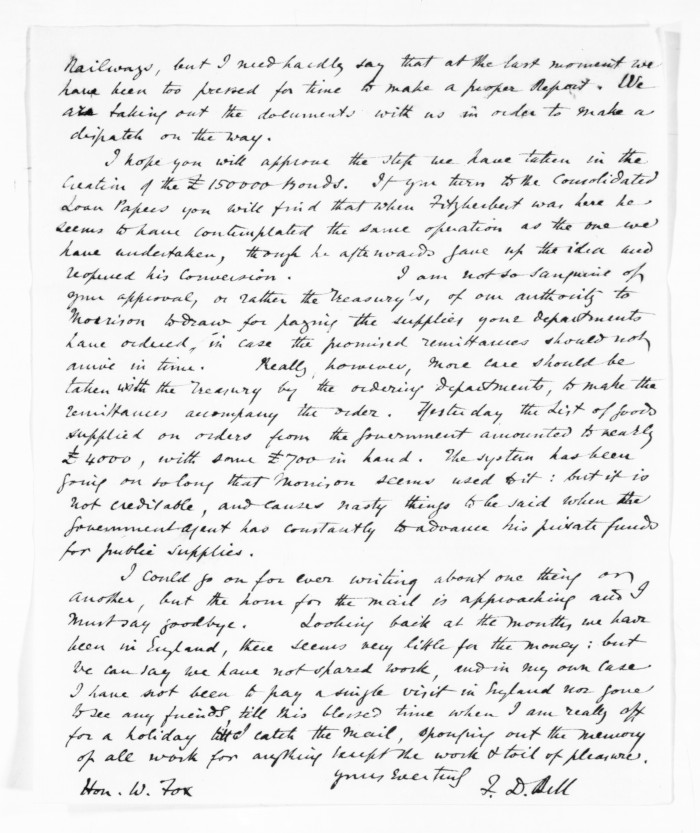 Railways, but I need hardly say that at the last moment we
have been too pressed for time to make a proper Report. We
are taking out the documents with us in order to make a
dispatch on the way.
I hope you will approve the step we have taken in the
Creation of the £150000 Bonds. If you turn to the Consolidated
Loan Papers you will find that when Fitzherbert was here he
seems to have contemplated the same operation as the one we
have undertaken, though he afterwards gave up the idea and
reopened his Conversion. I am not so sanguine of
your approval, or rather the Treasury's, of our authority to
Morrison to draw for paying the supplies your departments
have ordered, in case the promised remittances should not
arrive in time. Really, however, more care should be
taken with the Treasury by the ordering departments, to make the
remittances accompany the order. Yesterday the List of goods
supplied on orders from the Government amounted to nearly
£4000, with some £700 in hand. The system has been
going on so long that Morrison seems used to it: but it is
not creditable, and causes nasty things to be said when the
Government agent has constantly to advance his private funds
for public supplies.
I could go on for ever writing about one thing or
another, but the hour for the mail is approaching and I
must say goodbye. Looking back at the months we have
been in England, there seems very little for the money: but
we can say we have not spared work, and in my own case
I have not been to pay a single visit in England nor gone
to see any friends, till this blessed time when I am really off
for a holiday till I catch the Mail, sponging out the memory
of all work for anything except the work & toil of pleasure.
yours everting
Hon. W. Fox F. D. Bell